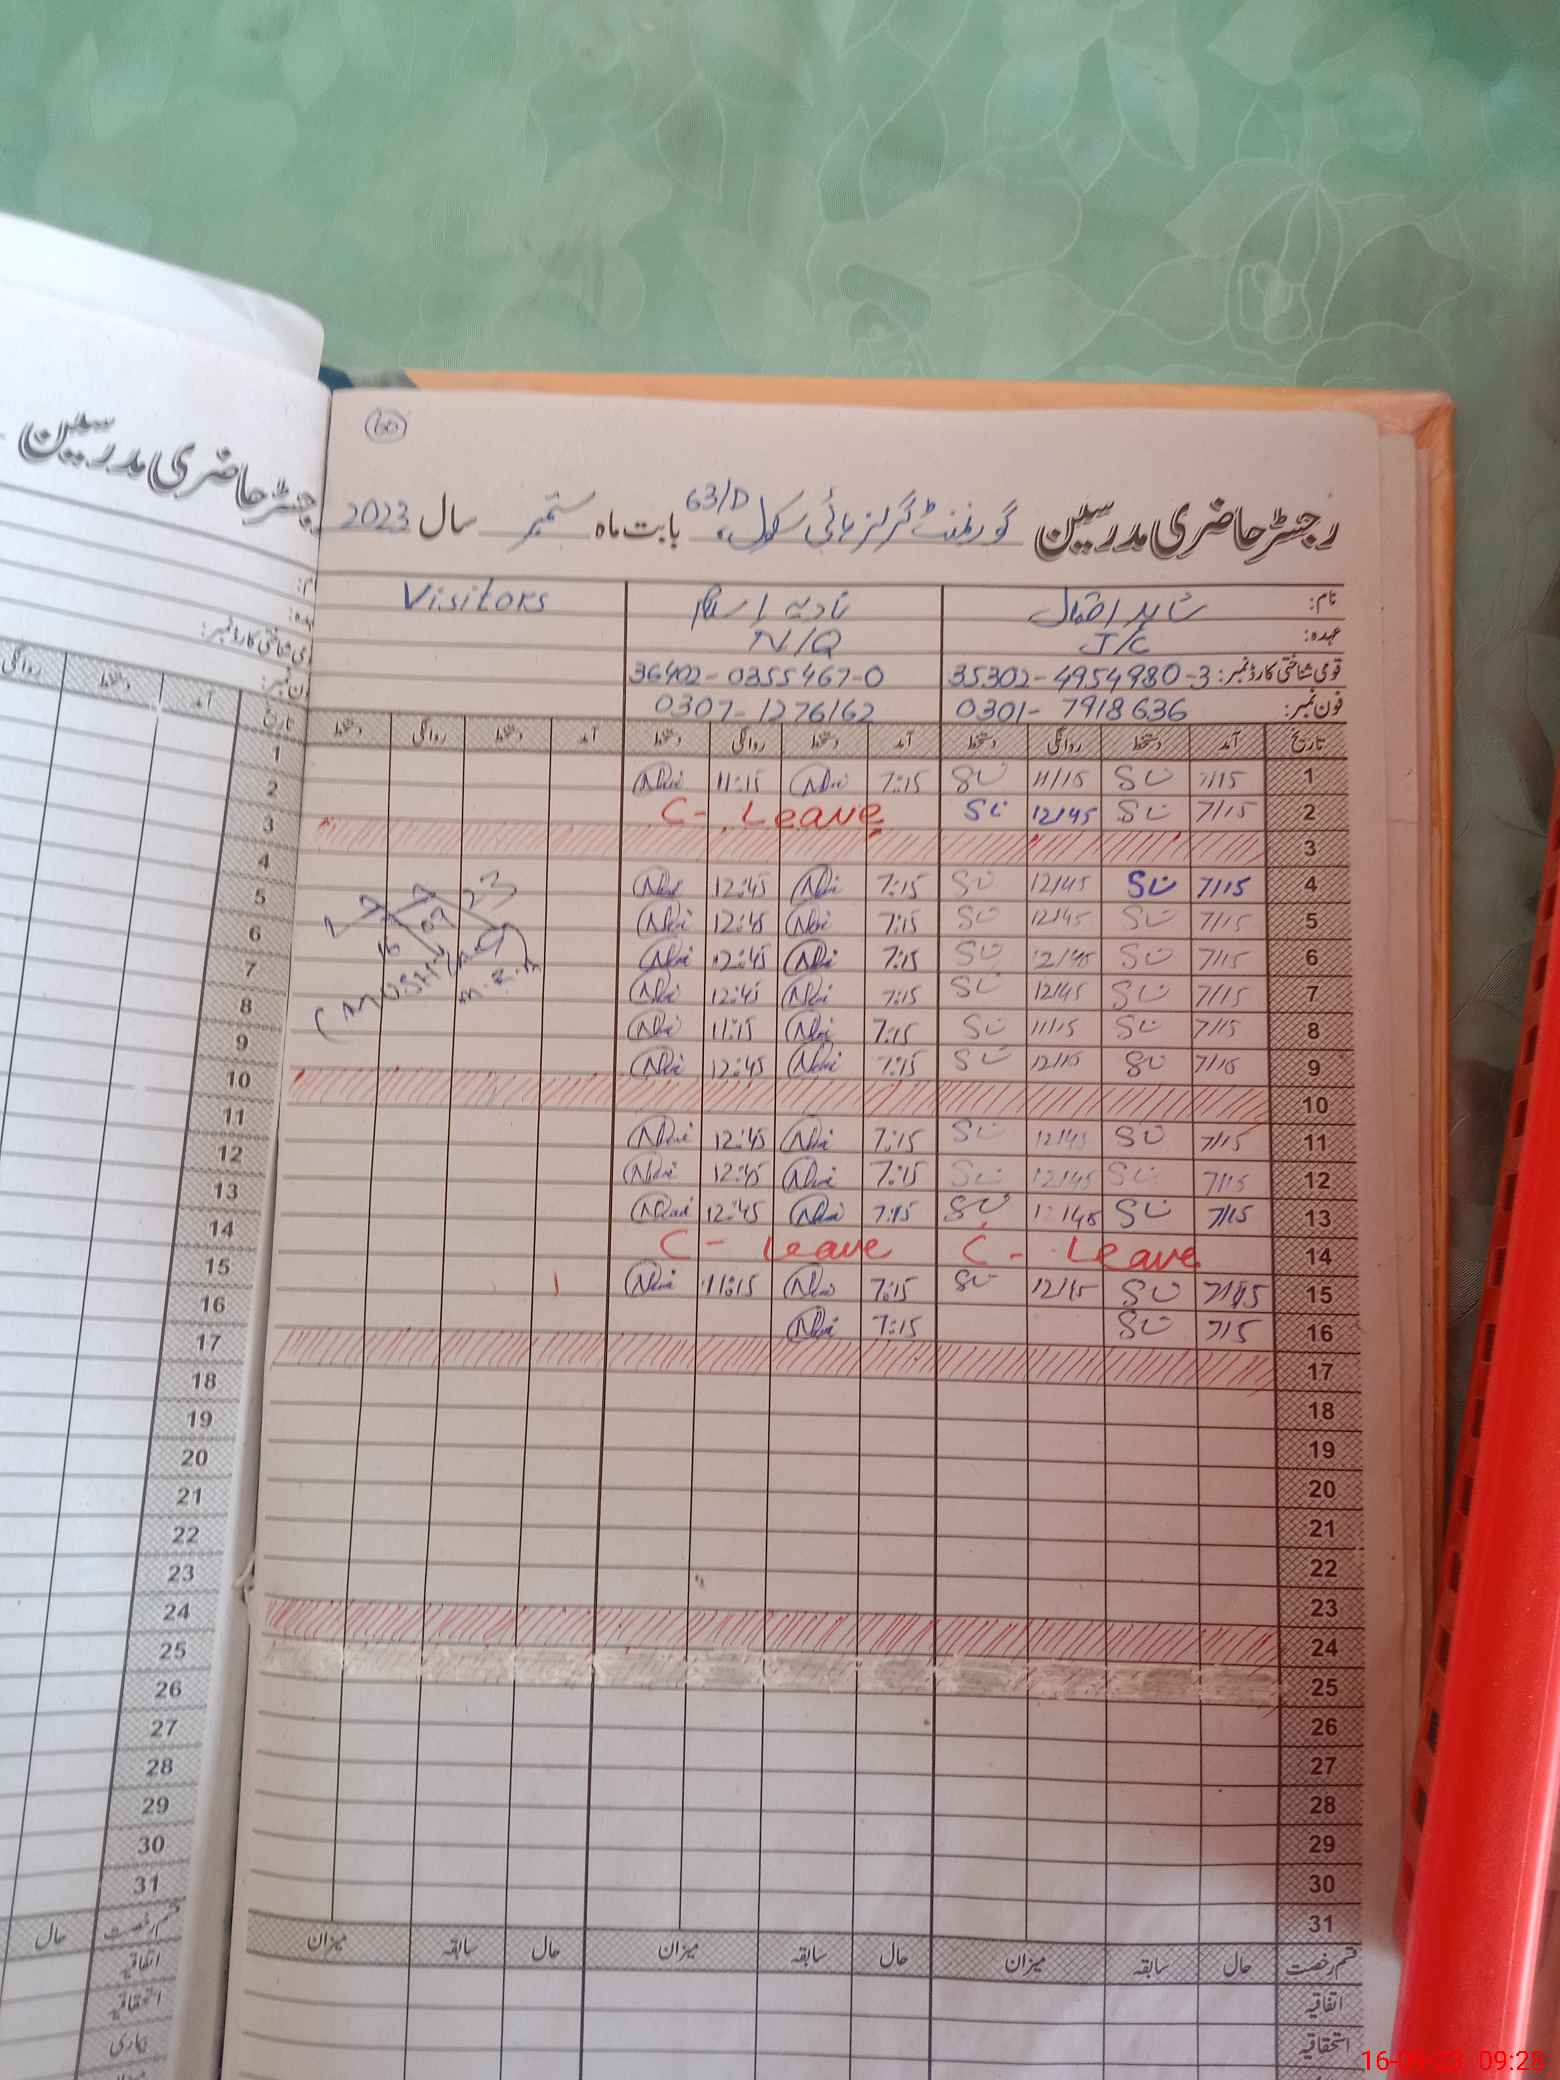 60
رجسٹر حاضری مدرسین گورنمنٹ گرلز ہائی سکول، 63/D بابت ماہ ستمبر سال 2023
رجسٹر حاضری مدرسین
نام: شاہد اقبال نادیہ اسلم Visitors
عہدہ: J/C N/Q
قومی شناختی کارڈ نمبر: 35302-4954980-3 36402-0355467-0
فون نمبر: 0301-7918636 0307-1276162
تاریخ آمد دستخط روانگی دستخط آمد دستخط روانگی دستخط آمد دستخط روانگی دستخط
1 7/15 11/15 7:15 11:15
2 7/15 12/45 C- Leave
3
4 7/15 12/45 7:15 12:45
5 7/15 12/45 7:15 12:45
6 7/15 12/45 7:15 12:45
7 7/15 12/45 7:15 12:45
8 7/15 11/15 7:15 11:15
9 7/15 12/45 7:15 12:45
10
11 7/15 12/45 7:15 12:45
12 7/15 12/45 7:15 12:45
13 7/15 12/45 7:15 12:45
14 C- Leave C- Leave
15 12/45 7:15 11:15
16 7/5 7:15
17
18
19
20
21
22
23
24
25
26
27
28
29
30
31
16 09 23
قسم رخصت حال سابقہ میزان حال سابقہ میزان حال سابقہ میزان
اتفاقیہ
استحقاقیہ
تاریخ آمد دستخط روانگی
1
2
3
4
5
6
7
8
9
10
11
12
13
14
15
16
17
18
19
20
21
22
23
24
25
26
27
28
29
30
31
قسم رخصت حال
اتفاقیہ
استحقاقیہ
بیماری
09:28